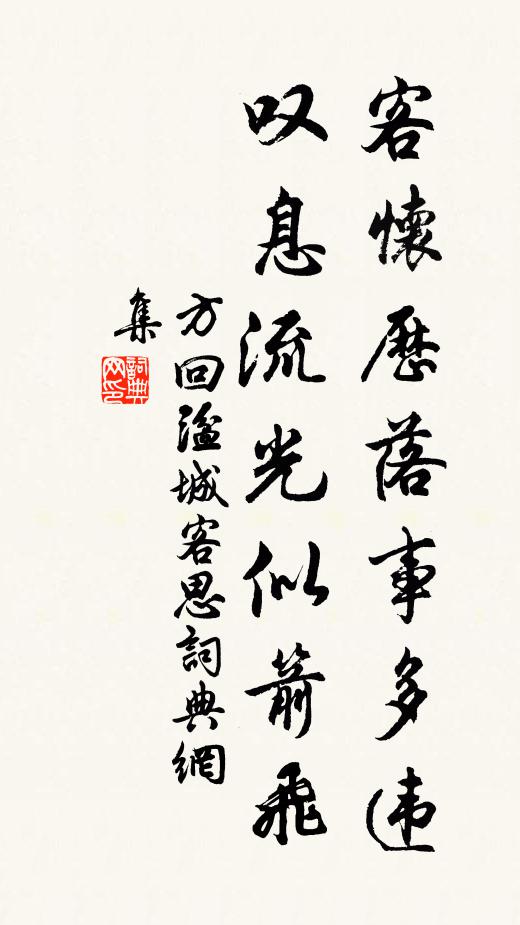 客懷歷落事多違
叹息流光似箭飛
方回湓城客思詞典網
集
詞典網印